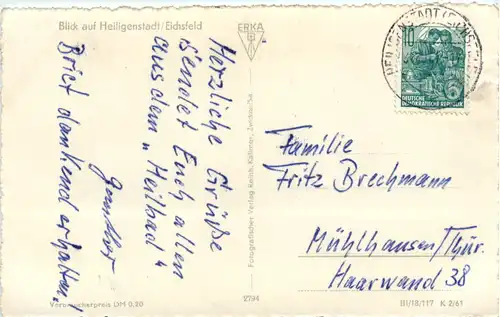 Blick auf Heiligenstadt/Eichsfeld
ERKA
Herzliche Grüße
sendet Euch allen
aus dem „Heilbad"
Brief dankend erhalten!
Verbraucherpreis DM 0,20
2794
10
DEUTSCHE
DEMOKRATISCHE REPUBLIK
Familie
Fritz Brechmann
Mühlhausen/Thür.
Haarwand 38
III/18/117 K 2/61